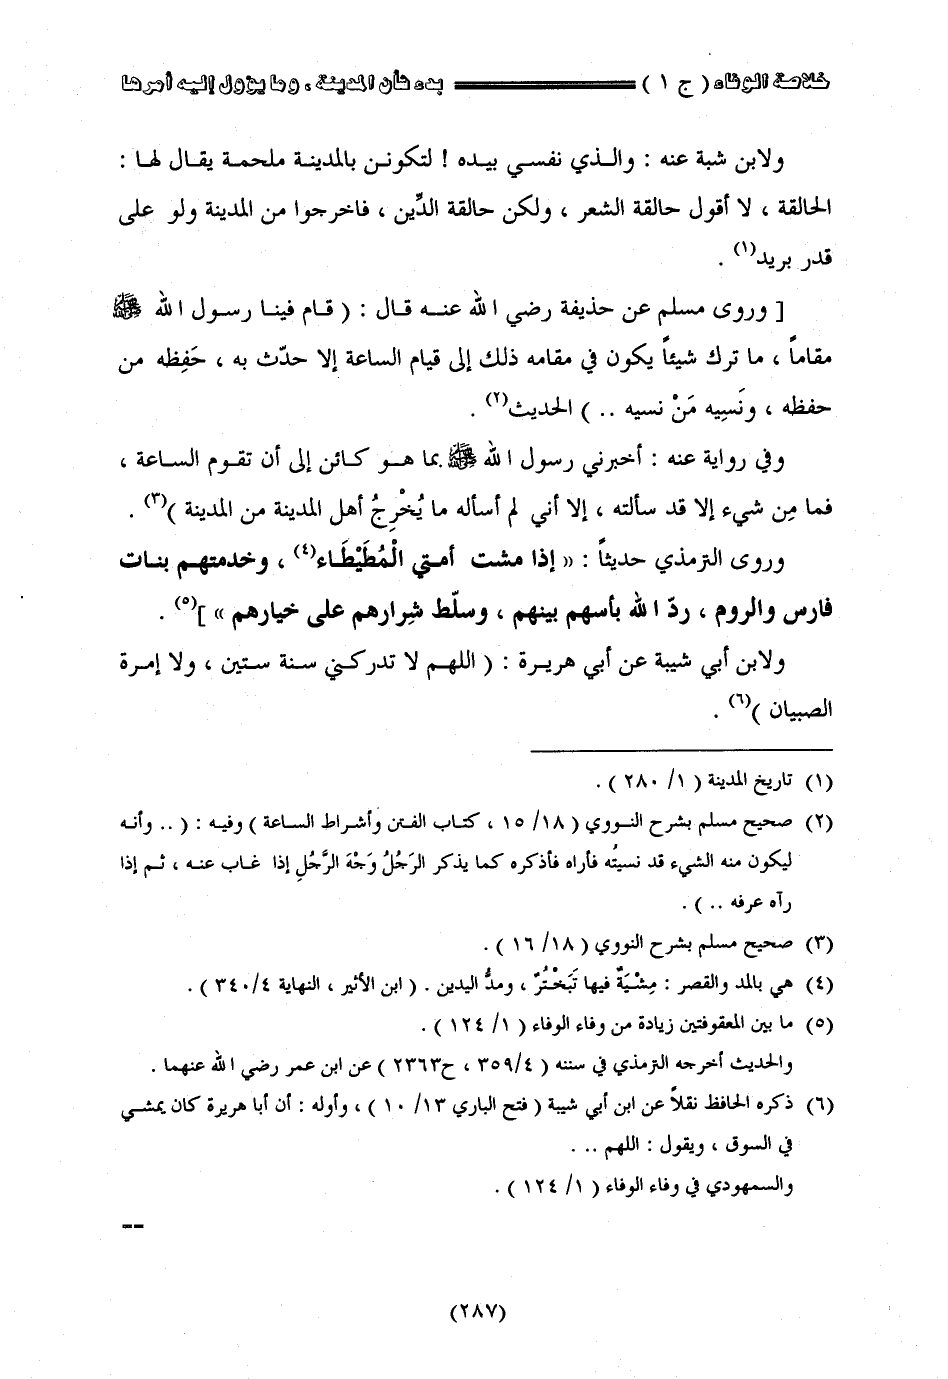 خلاصة الوفاء ( ج ١ ) بدء شأن المدينة ، وما يؤول إليه أمرها
ولابن شبة عنه : والـذي نفسـي بيـده ! لتكونـن بالمدينـة ملحمـة يقـال لهـا :
الحالقة ، لا أقول حالقة الشعر ، ولكن حالقة الدِّين ، فاخرجوا من المدينة ولو على
قدر بريد(١) .
[ وروى مسلم عن حذيفة رضي الله عنـه قـال : ( قـام فينـا رسـول الله ﷺ
مقاماً ، ما ترك شيئاً يكون في مقامه ذلك إلى قيام الساعة إلا حدّث به ، حَفِظه من
حفظه ، ونَسِيه مَنْ نسيه .. ) الحديث(٢) .
وفي رواية عنه : أخبرني رسول الله ﷺ بما هـو كـائن إلى أن تقـوم السـاعة ،
فما مِن شيء إلا قد سألته ، إلا أني لم أسأله ما يُخْرِجُ أهل المدينة من المدينة )(٣) .
وروى الترمذي حديثاً : « إذا مشت أمـتي الْمُطَيْطَـاء(٤) ، وخدمتهـم بنـات
فارس والروم ، ردّ الله بأسهم بينهم ، وسلّط شِرارهم على خيارهم » ](٥) .
ولابن أبي شيبة عن أبي هريـرة : ( اللهـم لا تدركـني سـنة سـتين ، ولا إمـرة
الصبيان )(٦) .
(١) تاريخ المدينة ( ١/ ٢٨٠ ) .
(٢) صحيح مسلم بشرح النـووي ( ١٨/ ١٥ ، كتـاب الفـتن وأشـراط السـاعة ) وفيـه : ( .. وأنـه
ليكون منه الشيء قد نسيتُه فأراه فأذكره كما يذكر الرَجُلُ وَجْهَ الرَّجُلِ إذا غـاب عنـه ، ثـم إذا
رآه عرفه .. ) .
(٣) صحيح مسلم بشرح النووي ( ١٨/ ١٦ ) .
(٤) هي بالمد والقصر : مِشْيَةٌ فيها تَبَخْتُرٌ ، ومدُّ اليدين . ( ابن الأثير ، النهاية ٣٤٠/٤ ) .
(٥) ما بين المعقوفتين زيادة من وفاء الوفاء ( ١/ ١٢٤ ) .
والحديث أخرجه الترمذي في سننه ( ٣٥٩/٤ ، ح٢٣٦٣ ) عن ابن عمر رضي الله عنهما .
(٦) ذكره الحافظ نقلاً عن ابن أبي شيبة ( فتح الباري ١٣/ ١٠ ) ، وأوله : أن أبا هريرة كان يمشـي
في السوق ، ويقول : اللهم .. .
والسمهودي في وفاء الوفاء ( ١/ ١٢٤ ) .
--
(٢٨٧)